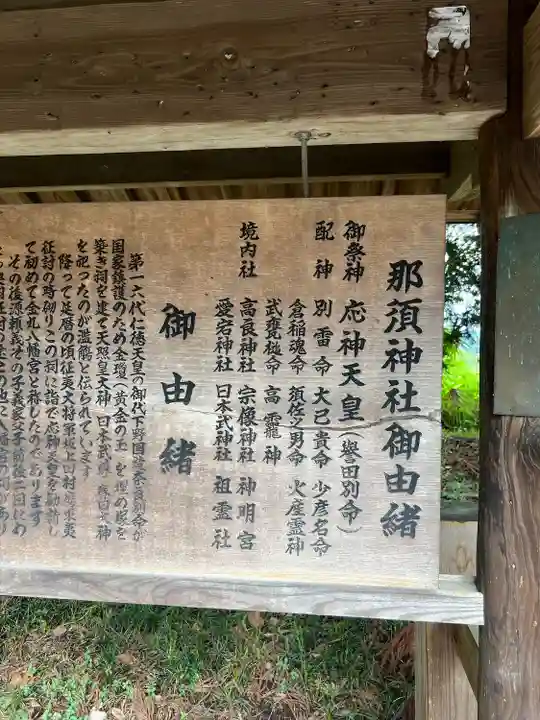 那須神社御由緒
御祭神 応神天皇(誉田別命)
配神 別雷命 大己貴命 少彦名命
倉稲魂命 須佐之男命 火産霊神
武甕槌命 高龗神
境内社 高良神社 宗像神社 神明宮
愛宕神社 日本武神社 祖霊社
御由緒
第一六代仁徳天皇の御代下野国造奈良別命が
国家鎮護のため金瓊(黄金の玉)を埋め塚を
築き祠を建て天照皇大神 日本武尊 春日大神
を祀ったのが濫觴と伝られています
降って延暦の頃征夷大将軍坂上田村麿東夷
征討の時初りこの祠に詣で応神天皇を勧請し
て初めて金丸八幡宮と称したのであります
その後源頼義その子義家父子前後二回にわ